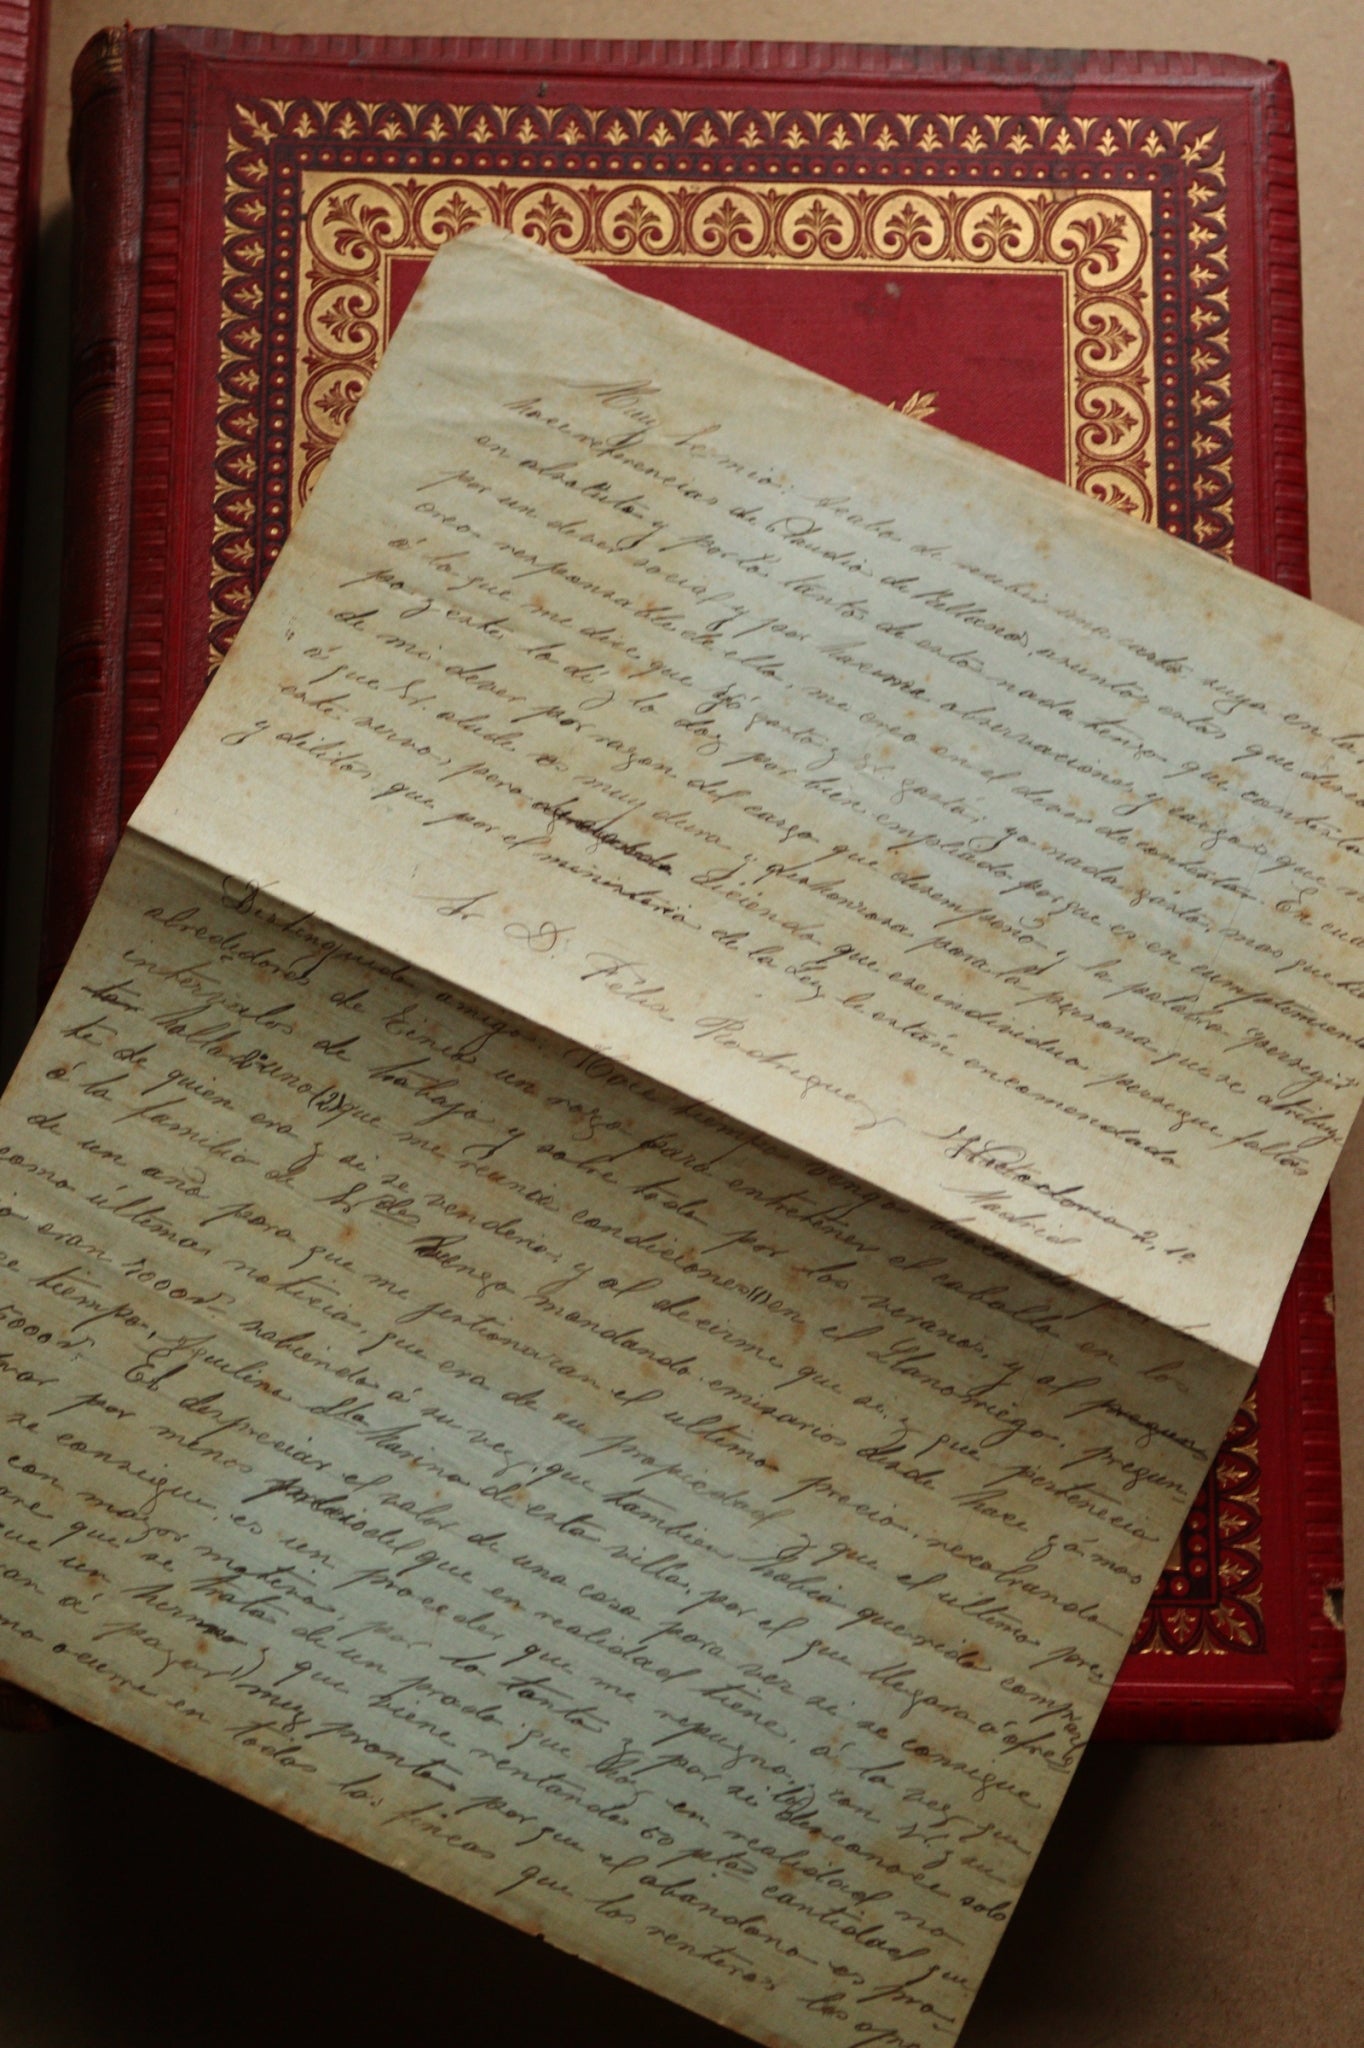 Muy Sr. mio: Acabo de recibir una carta suya en la
hace referencias de Claudio de Pellano, asuntos estos que desco
en absoluto y por lo tanto de esto nada tengo que contestar
por un deber social y por hacerme observaciones y cargos que
creo responsable de ello, me creo en el deber de contestar. En cuan
á lo que me dice, que yó gasto y V. gasta; yo nada gasto, mas que
pozeste lo dí y lo doy por bien empleado porque es en cumplimiento
de mi deber por razon del cargo que desempeño y la palabra "persegir"
á que V. alude es muy dura y deshonrosa para la persona que se atribuye
este vervo, pero diciendo que ese individuo persegue faltas
y dilitos que por el ministerio de la Ley le están encomendado
Sr. D. Felix Rodriguez
2, 1º
Madrid
Distinguido amigo: Hace tiempo vengo buscando por los
alrededores de un para entretener el caballo en los
intervalos de trabajo y sobre todo por los veranos, y al pregun
tar hallado uno (2) que me reunia condiciones (1) en el Llanoriego, pregun-
té de quien era y si se venderia, y al decirme que si, y que pertenecia
á la familia de Vdes vengo mandando emisarios desde hace yá mas
de un año para que me jestionaran el ultimo precio, recabrando
como última noticia, que era de su propiedad y que el ultimo pre
cio eran 7000 r. sabiendo á su vez, que tambien habia querido comprar
ese tiempo, Aquilino de esta villa, por el que llegara á ofrez
6000 r. El despreciar el valor de una cosa para ver si se consigue
por menos precio del que en realidad tiene, á la vez que
se consigue, es un proceder que me repugna, con V. y su
con mayor motivo, por lo tanto y por si lo desconoce solo
que se trata de un prado que hoy en realidad no
que un y que viene rentando 60 ptas cantidad que
á pagar muy pronto por que el abandono es pro-
mo ocurre en todas las fincas que los renteros las